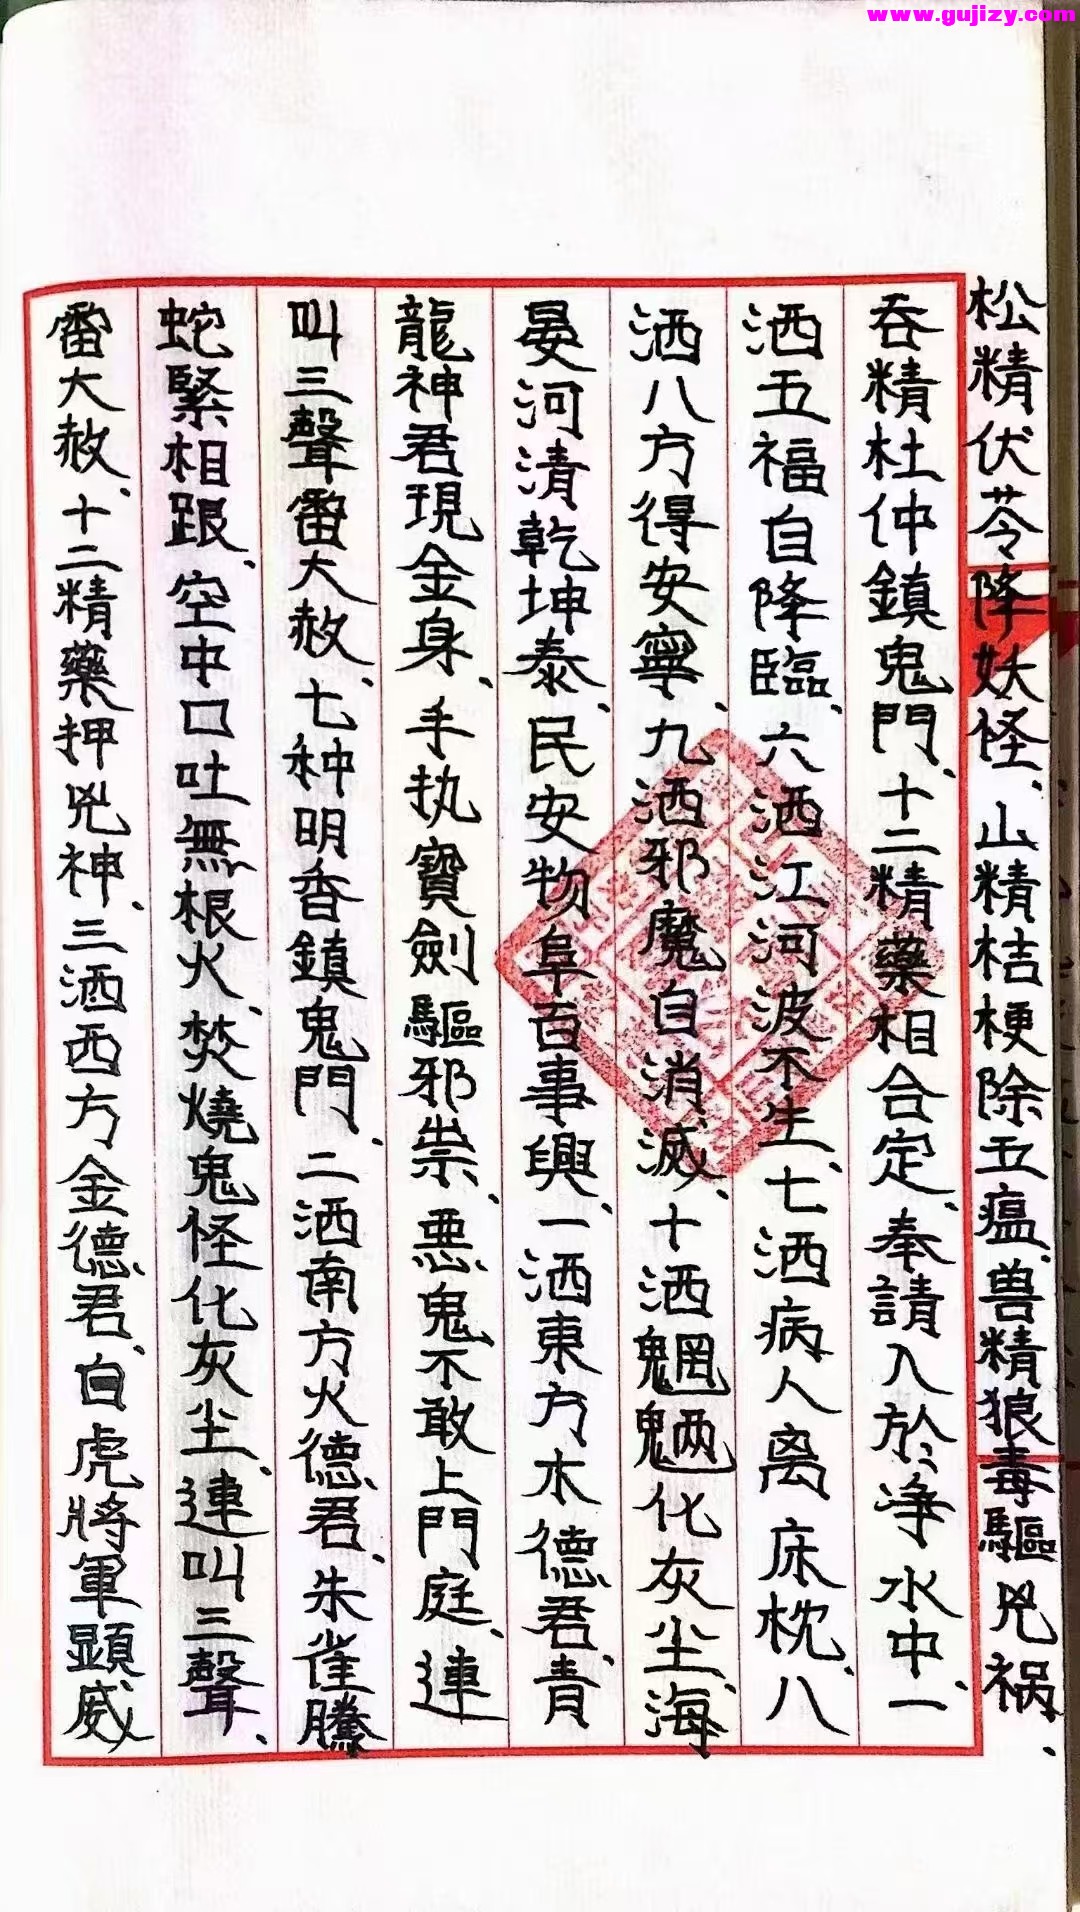 www.gujizy.com
松精伏苓降妖怪、山精桔梗除五瘟、兽精狼毒驅兇祸、
吞精杜仲鎮鬼門、十二精藥相合定、奉請入於净水中、一
洒五福自降臨、六洒江河波不生、七洒病人离床枕、八
洒八方得安寧、九洒邪魔自消滅、十洒魍魎化灰尘、海
晏河清乾坤泰、民安物阜百事興、一洒東方木德君、青
龍神君現金身、手执寶劍驅邪祟、惡鬼不敢上門庭、連
叫三聲雷大赦、七种明香鎮鬼門、二洒南方火德君、朱雀騰
蛇緊相跟、空中口吐無根火、焚燒鬼怪化灰尘、連叫三聲、
雷大赦、十二精藥押兇神、三洒西方金德君、白虎將軍顕威